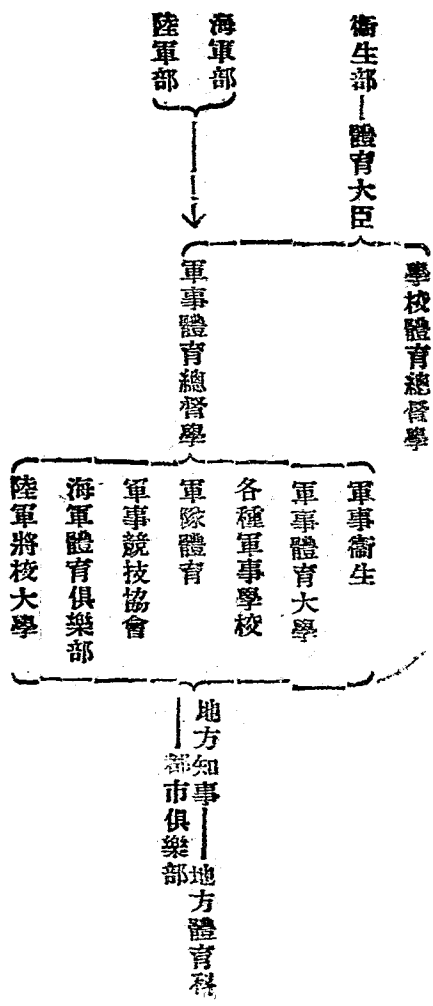 衞生部—體育大臣
海軍部
陸軍部
學校體育總督學
軍事體育總督學
軍事衞生
軍事體育大學
各種軍事學校
軍隊體育
軍事競技協會
海軍體育俱樂部
陸軍將校大學
地方知事—地方體育科
都市俱樂部